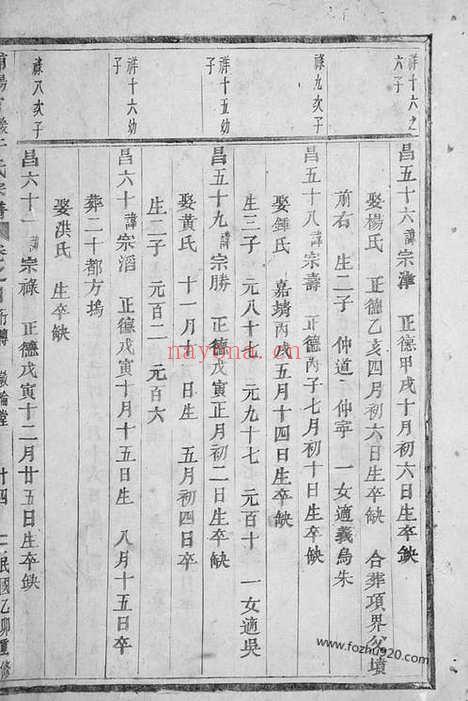 祥十六之
六子
昌五十六諱宗津 正德甲戌十月初六日生卒缺
娶楊氏 正德乙亥四月初六日生卒缺 合葬項界公墳
前右 生二子 仲道 仲寧 一女適義烏朱
祿九次子
昌五十八諱宗壽 正德丙子七月初十日生卒缺
娶鍾氏 嘉靖丙戌五月十四日生卒缺
生三子 元八十七 元九十七 元百十 一女適吳
祥十五幼
子
昌五十九諱宗勝 正德戊寅正月初二日生卒缺
娶黃氏 十一月十 日生 五月初四日卒
生二子 元百二 元百六
祥十六幼
子
昌六十諱宗滔 正德戊寅十月十五日生 八月十五日卒
葬二十都方塢
娶洪氏 生卒缺
祿八次子
昌六十一諱宗祿 正德戊寅十二月廿五日生卒缺
氏宗譜 十四 民國乙卯重修
nayona.cn
www.fozhu920.com